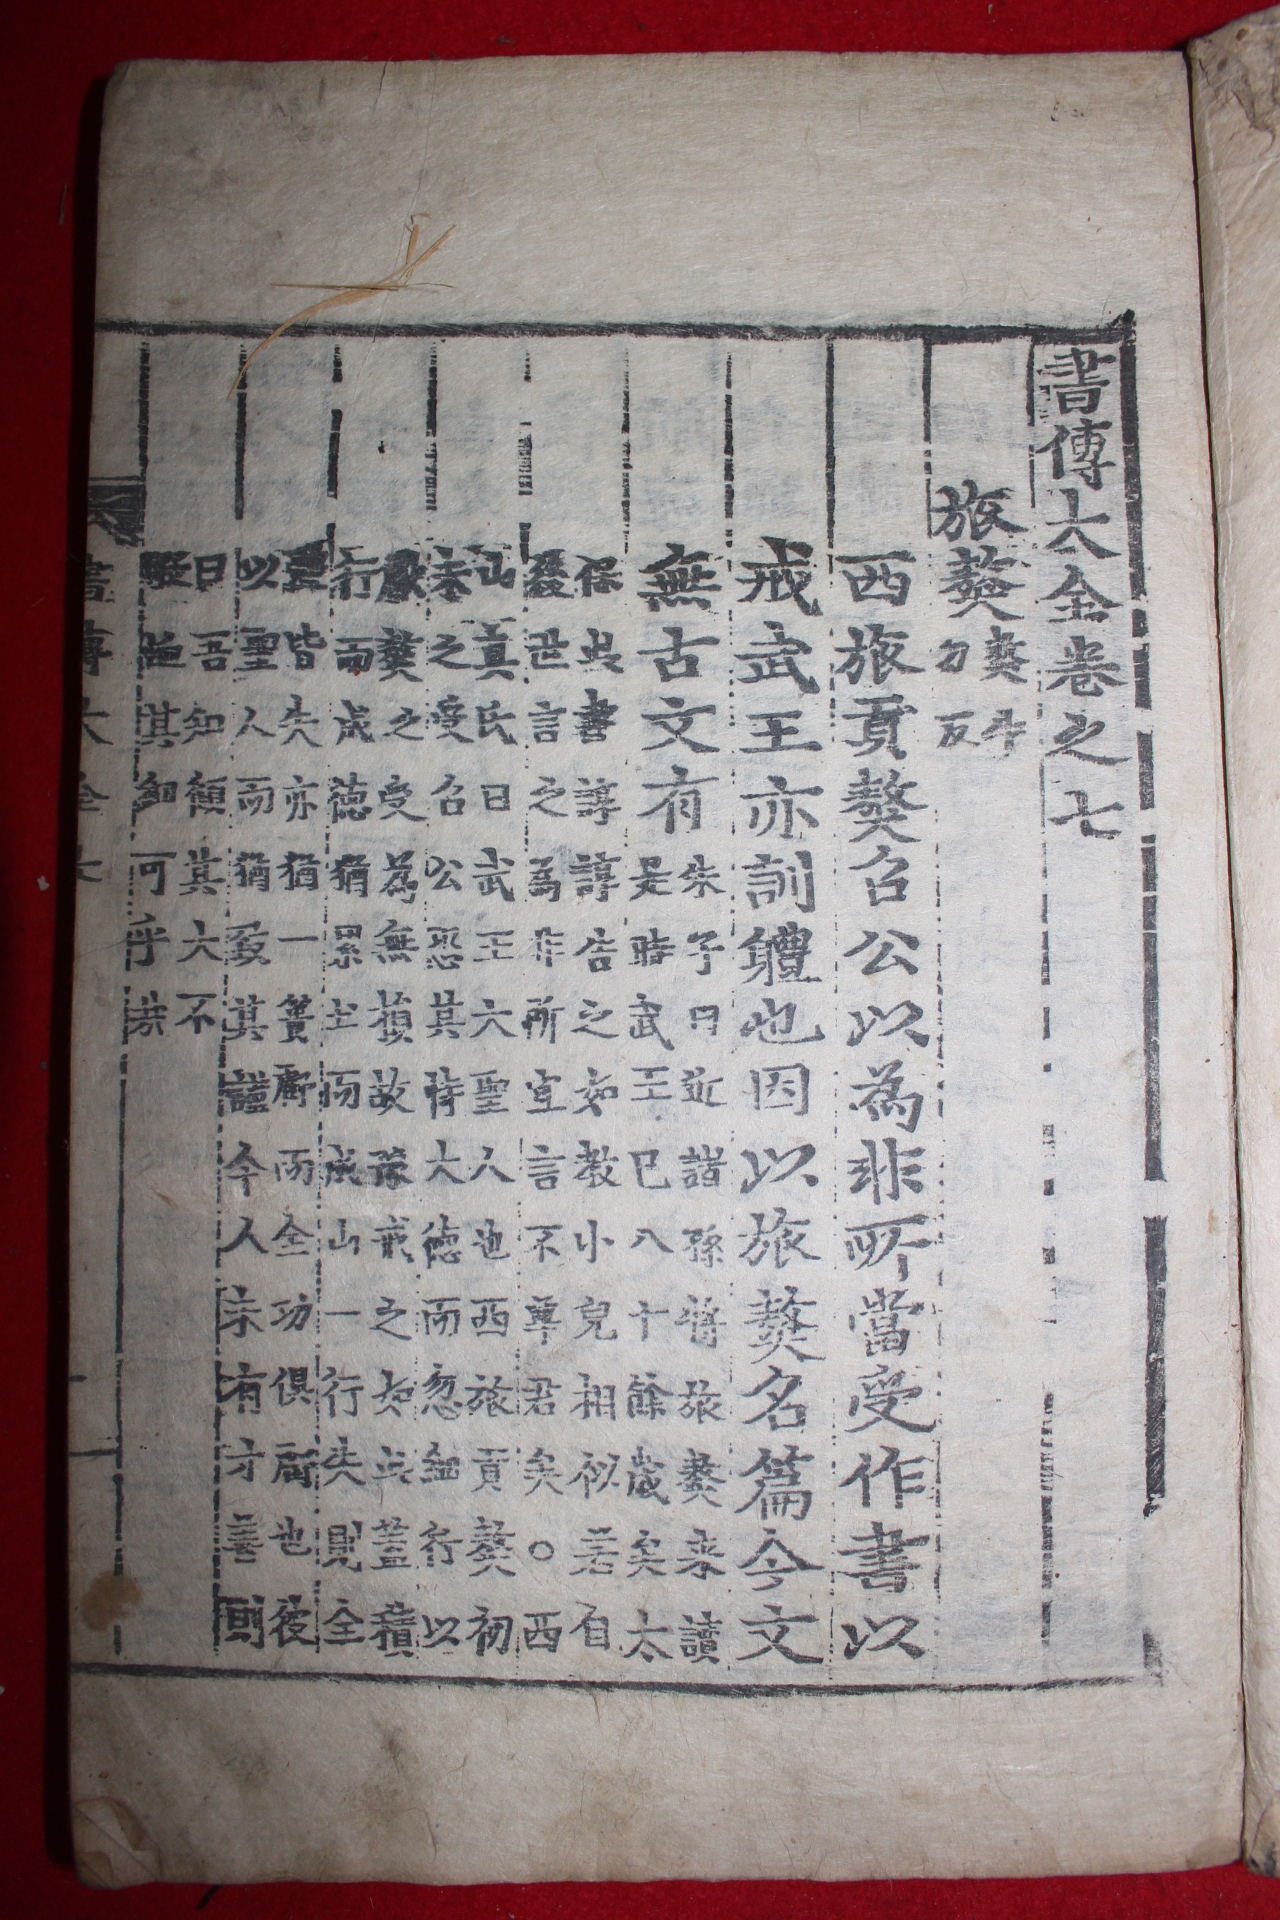 書傳大全卷之七
旅獒獒牛
刀反
西旅貢獒召公以為非所當受作書以
戒武王亦訓體也因以旅獒名篇今文
無古文有朱子曰近諸孫將旅獒來讀
是時武王已八十餘歲矣太
保此書諄諄告之如教小兒相似若自
後世言之為非所宜言不尊君矣○西
山真氏曰武王大聖人也西旅貢獒初
未之受召公恐其恃大德而忽細行以
獒之受為無損故豫戒之如此蓋積
行而成德猶累土而成山一行失則全
皆失亦猶一簣虧而全功俱廢也後
以聖人而猶致其謹今人未有寸善則
曰吾知顧其大不
其細可乎哉
書傳大全